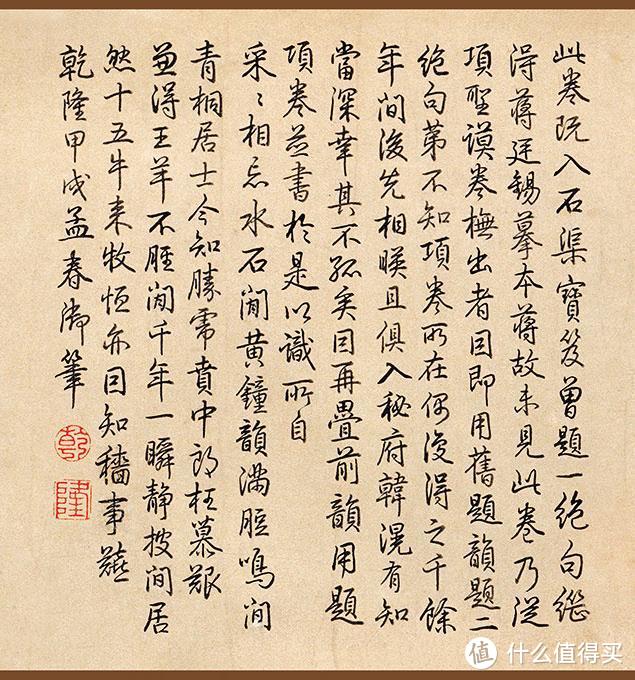 此卷既入石渠寶笈曾題一絶句繼
得蔣廷錫摹本蔣故未見此卷乃從
項聖謨卷橅出者因即用舊題韻題二
絶句第不知項卷所在偶復得之千餘
年間後先相暎且俱入秘府韓滉有知
當深幸其不孤矣因再疊前韻用題
項卷並書於是以識所自
采〻相忘水石間黃鐘韻滿脰鳴間
青桐居士今知勝賁中郎枉慕艱
兼得王羊不脛間千年一瞬靜披間居
然十五牛來牧恒亦因知穡事艱
乾隆甲戌孟春御筆
乾
隆
值 什么值得买